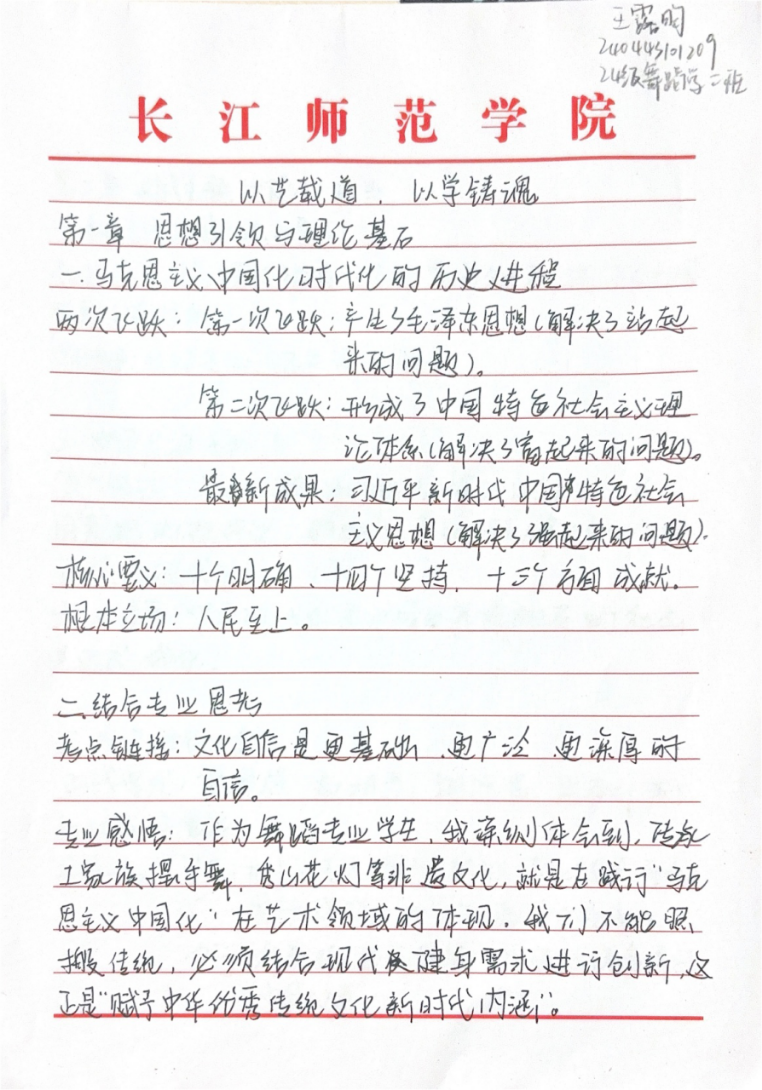 王露昀
240443101209
24级舞蹈学二班
长江师范学院
以艺载道，以学铸魂
第一章 思想引领与理论基石
一.马克思主义中国化时代化的历史进程
两次飞跃：第一次飞跃：产生了毛泽东思想(解决了站起
来的问题)。
第二次飞跃：形成了中国特色社会主义理
论体系(解决了富起来的问题)。
最新成果：习近平新时代中国特色社会
主义思想(解决了强起来的问题).
核心要义：十个明确、十四个坚持，十三个方面成就.
根本立场：人民至上。
二.结合专业思考
考点链接：文化自信是更基础、更广泛、更深厚的
自信。
专业感悟：作为舞蹈专业学生，我深刻体会到，传承
土家族摆手舞，秀山花灯等非遗文化，就是在践行“马克
思主义中国化”在艺术领域的体现，我们不能照
搬传统，必须结合现代健身需求进行创新，这
正是“赋予中华优秀传统文化新时代内涵”。